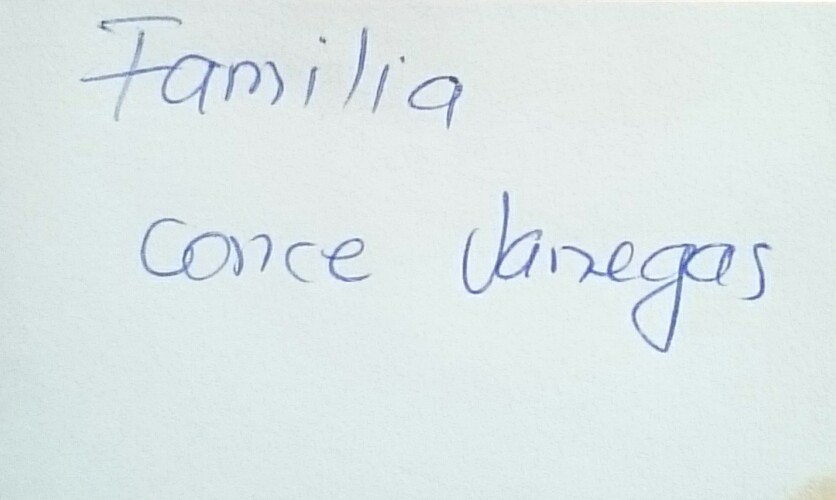 Familia
conce Vanegas